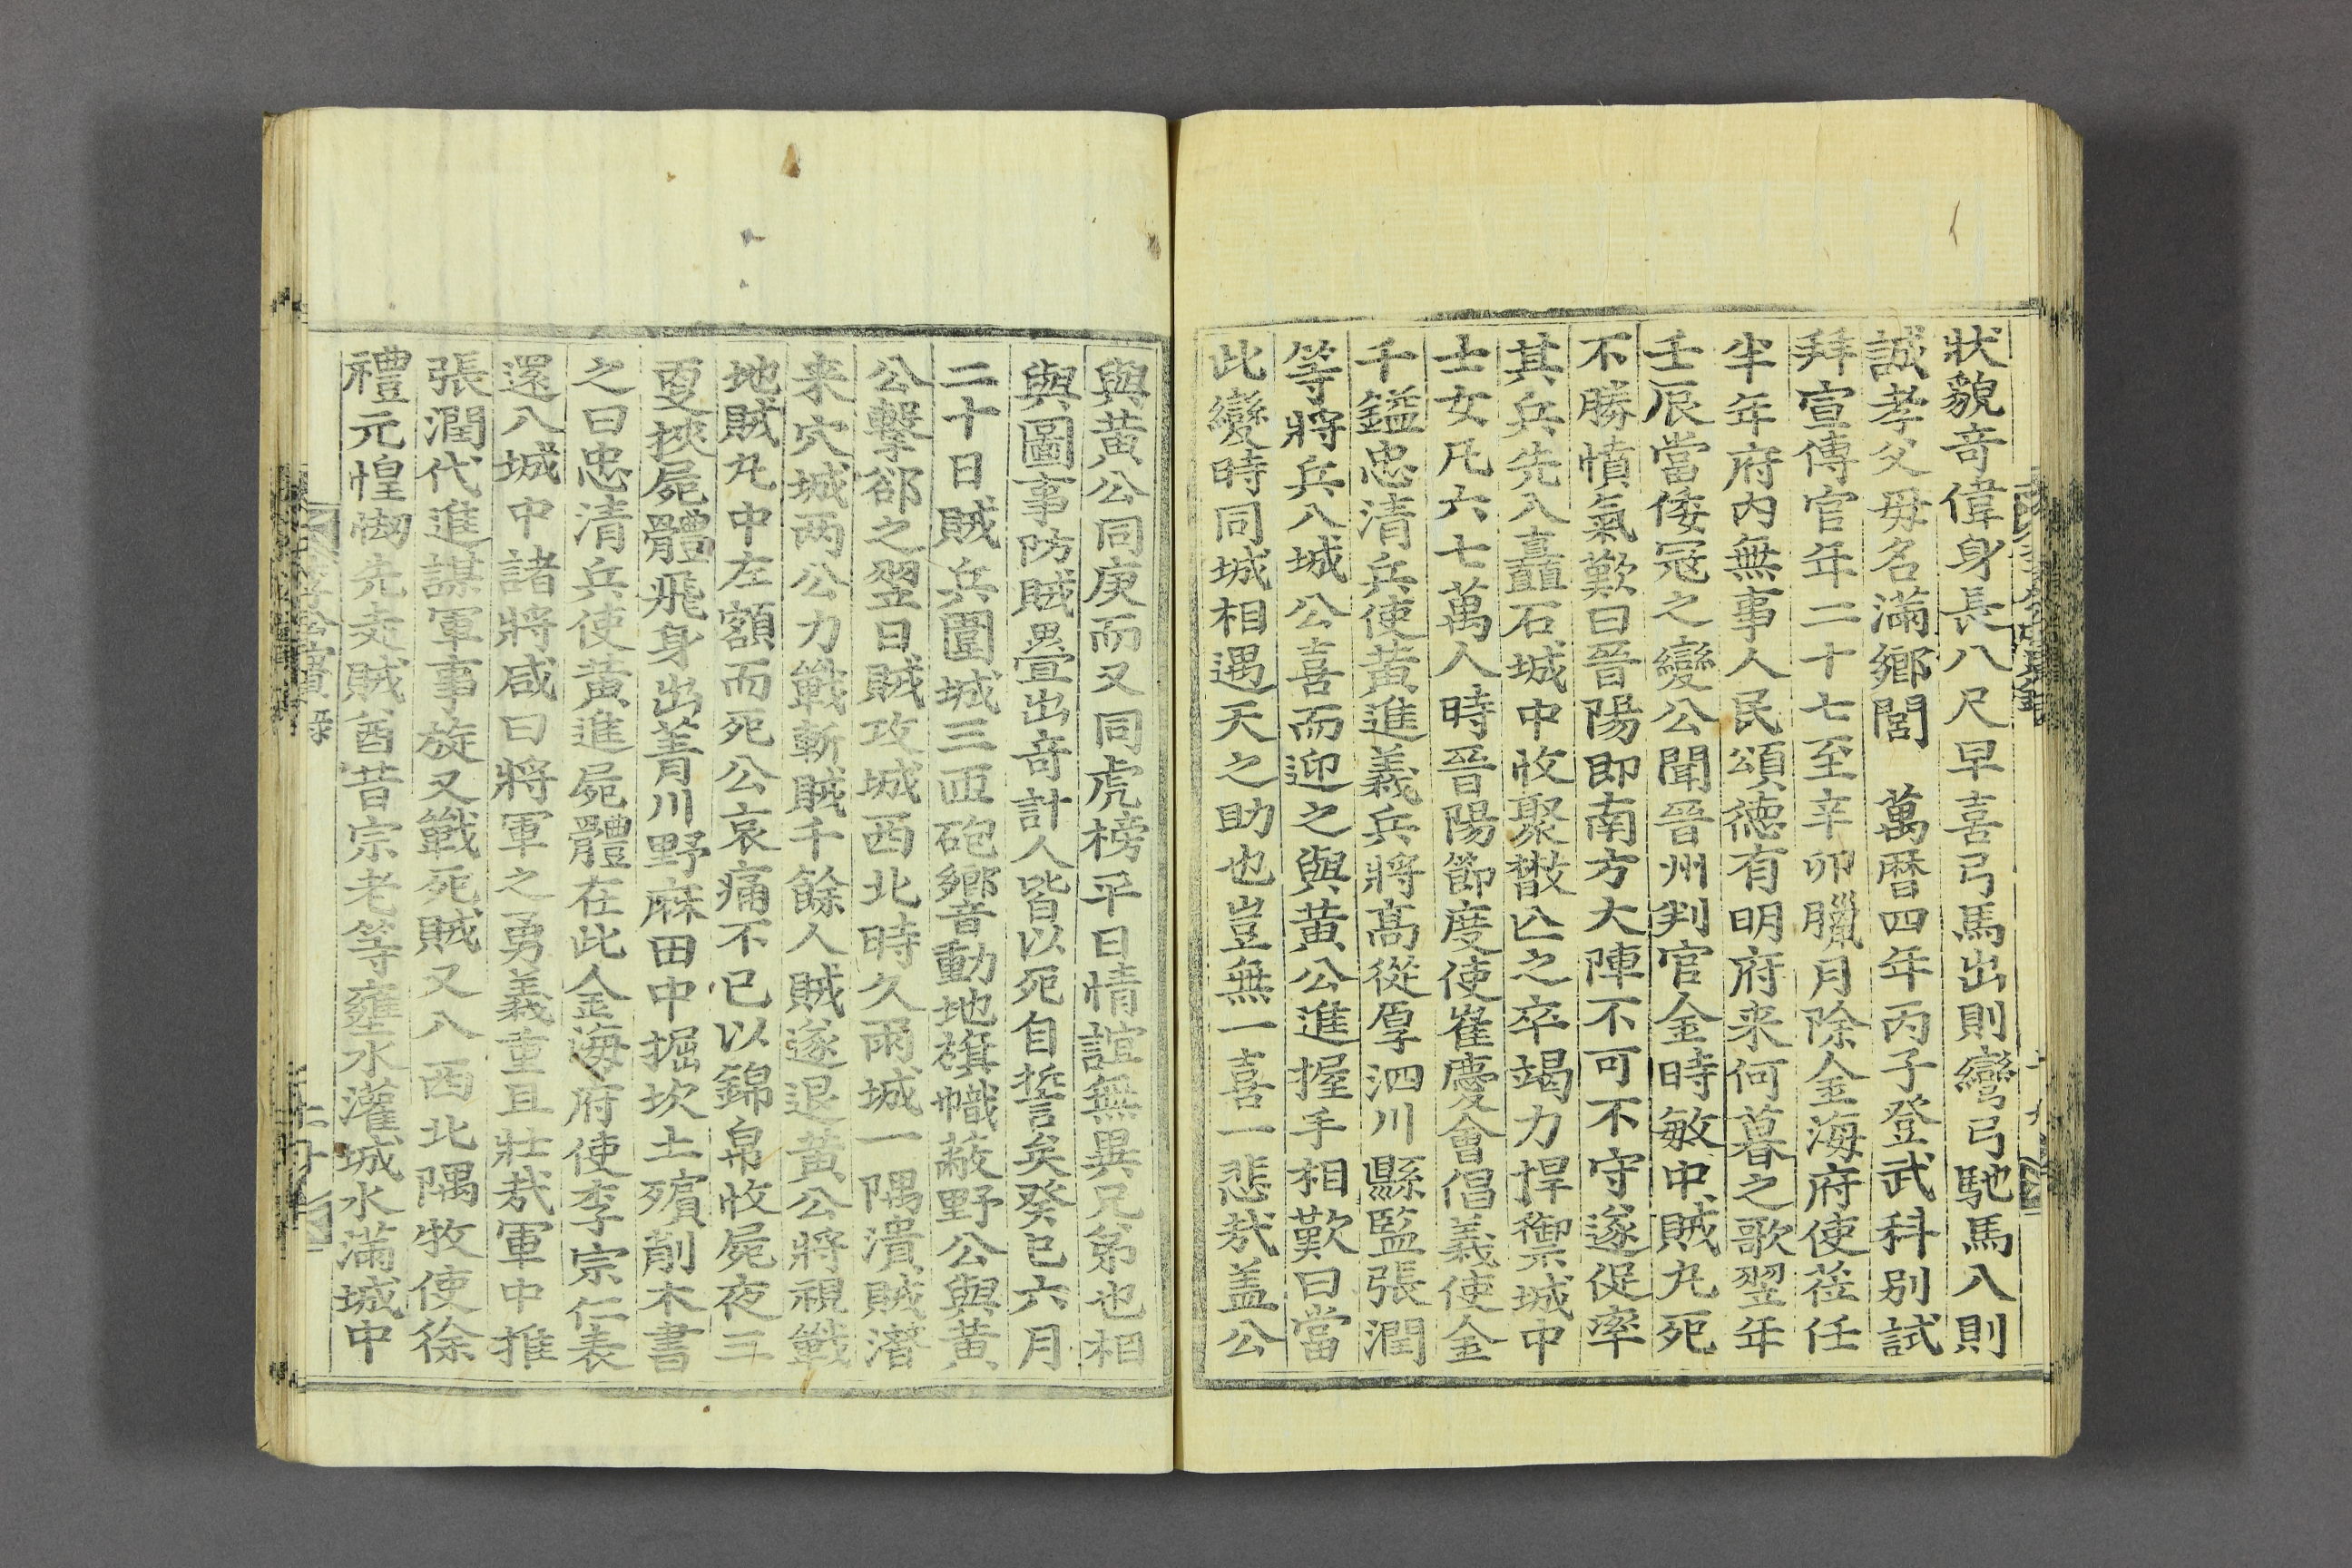 狀貌奇偉身長八尺早喜弓馬出則彎弓馳馬入則
誠孝父母名滿鄉閭 萬曆四年丙子登武科別試
拜宣傳官年二十七至辛卯臘月除金海府使莅任
半年府內無事人民頌德有明府来何暮之歌翌年
壬辰當倭冦之變公聞晉州判官金時敏中賊丸死
不勝憤氣歎曰晉陽即南方大陣不可不守遂促率
其兵先入矗石城中收聚散亾之卒竭力捍禦城中
士女凡六七萬人時晉陽節度使崔慶會倡義使金
千鎰忠清兵使黃進義兵將高從厚泗川縣監張潤
等將兵入城公喜而迎之與黃公進握手相歎曰當
此變時同城相遇天之助也豈無一喜一悲哉盖公
與黃公同庚而又同虎榜平日情誼無異兄弟也相
與圖事防賊疊出奇計人皆以死自誓矣癸巳六月
二十日賊兵圍城三匝砲響動地旗幟蔽野公與黃
公擊郤之翌日賊攻城西北時久雨城一隅潰賊潛
来穴城两公力戰斬賊千餘人賊遂退黃公將視戰
地賊丸中左額而死公哀痛不已以錦帛收屍夜三
更挾屍體飛身出菁川野麻田中掘坎土殯削木書
之曰忠清兵使黃進屍體在此金海府使李宗仁表
還入城中諸將咸曰將軍之勇義重且壯哉軍中推
張潤代進謀軍事旋又戰死賊又入西北隅牧使徐
禮元惶㥘先走賊酋昔宗老等壅水灌城水滿城中
二十